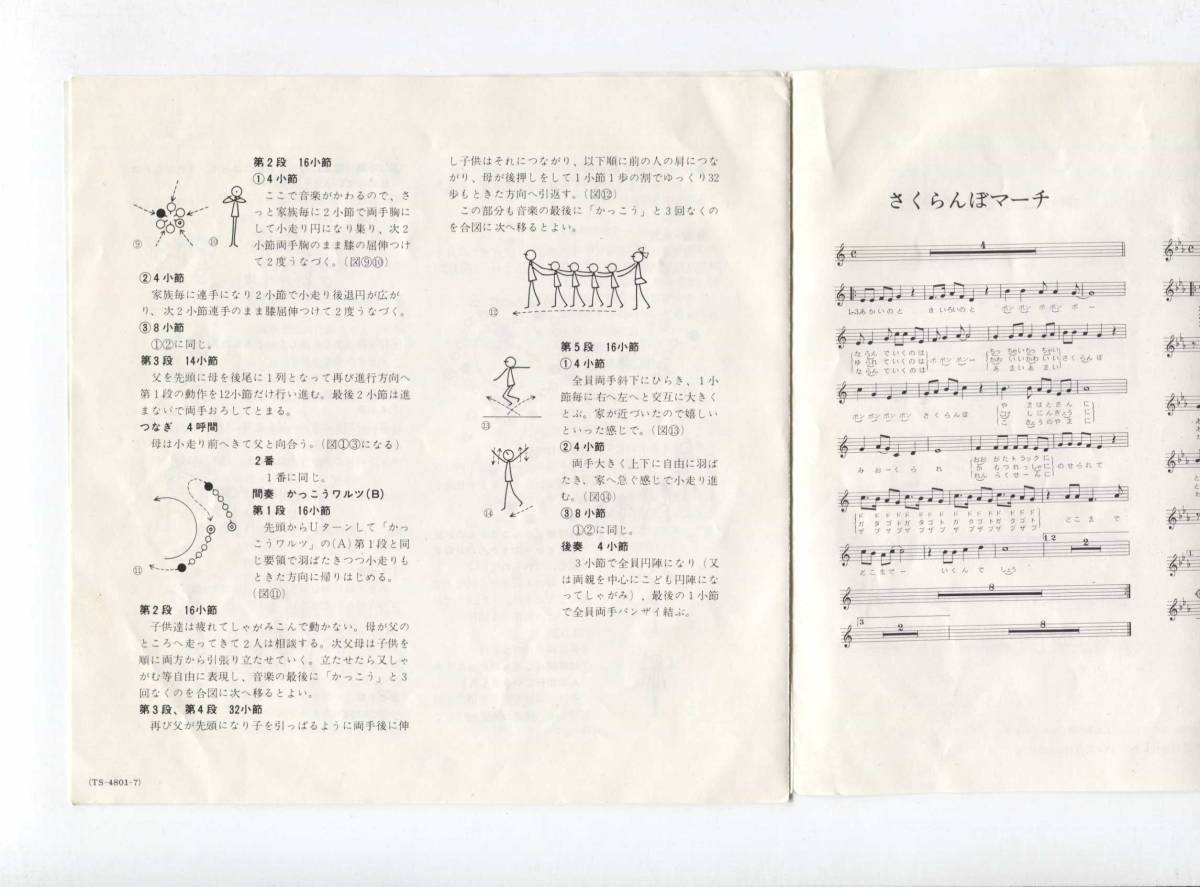 第2段 16小節
①4小節
ここで音楽がかわるので、さ
っと家族毎に2小節で両手胸に
して小走り円になり集り、次2
小節両手胸のまま膝の屈伸つけ
て2度うなづく。(図⑨⑩)
⑨
⑩
②4小節
家族毎に連手になり2小節で小走り後退円が広が
り、次2小節連手のまま膝屈伸つけて2度うなづく。
③8小節
①②に同じ。
第3段 14小節
父を先頭に母を後尾に1列となって再び進行方向へ
第1段の動作を12小節だけ行い進む。最後2小節は進
まないで両手おろしてとまる。
つなぎ 4呼間
母は小走り前へきて父と向合う。(図①③になる)
2番
1番に同じ。
間奏 かっこうワルツ(B)
第1段 16小節
先頭からUターンして「かっ
こうワルツ」の(A)第1段と同
じ要領で羽ばたきつつ小走りも
ときた方向に帰りはじめる。
(図⑪)
⑪
第2段 16小節
子供達は疲れてしゃがみこんで動かない。母が父の
ところへ走ってきて2人は相談する。次父母は子供を
順に両方から引張り立たせていく。立たせたら又しゃ
がむ等自由に表現し、音楽の最後に「かっこう」と3
回なくのを合図に次へ移るとよい。
第3段、第4段 32小節
再び父が先頭になり子を引っぱるように両手後に伸
(TS-4801-7)
し子供はそれにつながり、以下順に前の人の肩につな
がり、母が後押しをして1小節1歩の割でゆっくり32
歩もときた方向へ引返す。(図⑫)
この部分も音楽の最後に「かっこう」と3回なくの
を合図に次へ移るとよい。
⑫
第5段 16小節
①4小節
全員両手斜下にひらき、1小
節毎に右へ左へと交互に大きく
とぶ。家が近づいたので嬉しい
といった感じで。(図⑬)
⑬
②4小節
両手大きく上下に自由に羽ば
たき、家へ急ぐ感じで小走り進
む。(図⑭)
⑭
③8小節
①②に同じ。
後奏 4小節
3小節で全員円陣になり(又
は両親を中心にこども円陣にな
ってしゃがみ)、最後の1小節
で全員両手バンザイ結ぶ。
さくらんぼマーチ
4
1.3.あかいのと きいろいのと ポンポン ポンポン ポー
ならんでいくのは
ゆれていくのは
ならんでいくのは
ポポンポンー
さくらんぼ
ポンポンポンポン さくらんぼ
みおーくられ
のせられて
どこまで
どこまでー いくんでしょう
1.2.
2
8
3
2
8